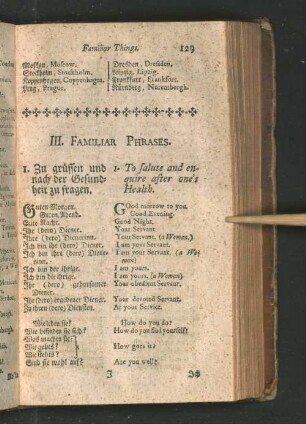 Familiar Things. 129
Moskau, Moscow.
Stockholm, Stockholm.
Koppenhagen, Coppenhagen.
Prag, Prague.
Dresden, Dresden.
Leipzig, Lipzig.
Frankfurt, Frankfurt.
Nürnberg, Nuremburgh.
III. FAMILIAR PHRASES.
1. Zu grüssen und
nach der Gesund-
heit zu fragen.
Guten Morgen.
Guten Abend.
Gute Nacht.
Ihr (dero) Diener.
Ihre (dero) Dienerinn.
Ich bin ihr (dero) Diener.
Ich bin ihre (dero) Diene-
rinn.
Ich bin der ihrige.
Ich bin die ihrige.
Ihr (dero) gehorsamer
Diener.
Ihr (dero) ergebener Diener.
Zu ihren (dero) Diensten.
Wie leben sie?
Wie befinden sie sich?
Was machen sie?
Wie gehts?
Wie stehts?
Sind sie wohl auf?
1. To salute and en-
quire after one's
Health.
Good morrow to you.
Good Evening.
Good Night.
Your Servant.
Your Servant. (a Woman)
I am your Servant.
I am your Servant. (a Wo-
man)
I am yours.
I am yours. (a Woman)
Your obedient Servant.
Your devoted Servant.
At your Service.
How do you do?
How do you find yourself?
How goes it?
Are you well?
J